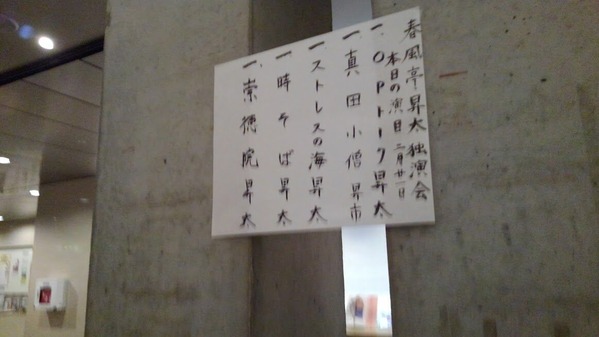 春風亭昇太独演会
本日の演目 二月廿一日
一、OPトーク 昇太
一、真田小僧 昇市
一、ストレスの海 昇太
一、時そば 昇太
一、崇徳院 昇太